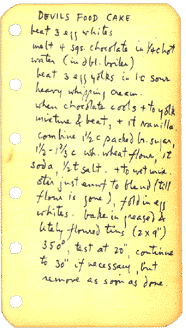 DEVILS FOOD CAKE
beat 3 egg whites
melt 4 sqs. chocolate in ½c hot
water (in dbl. boiler)
beat 3 egg yolks in 1c sour
heavy whipping cream.
when chocolate cools + to yolk
mixture & beat, + 1t vanilla.
combine 1½c packed b. sugar,
1½-1⅔c wh. wheat flour, 1t
soda, ½t salt. + to wet mix.
stir just enuf to blend (till
flour is gone), fold in egg
whites. bake in greased &
litely floured tins (2x9")
350°, test at 20", continue
to 30" if necessary, but
remove as soon as done.